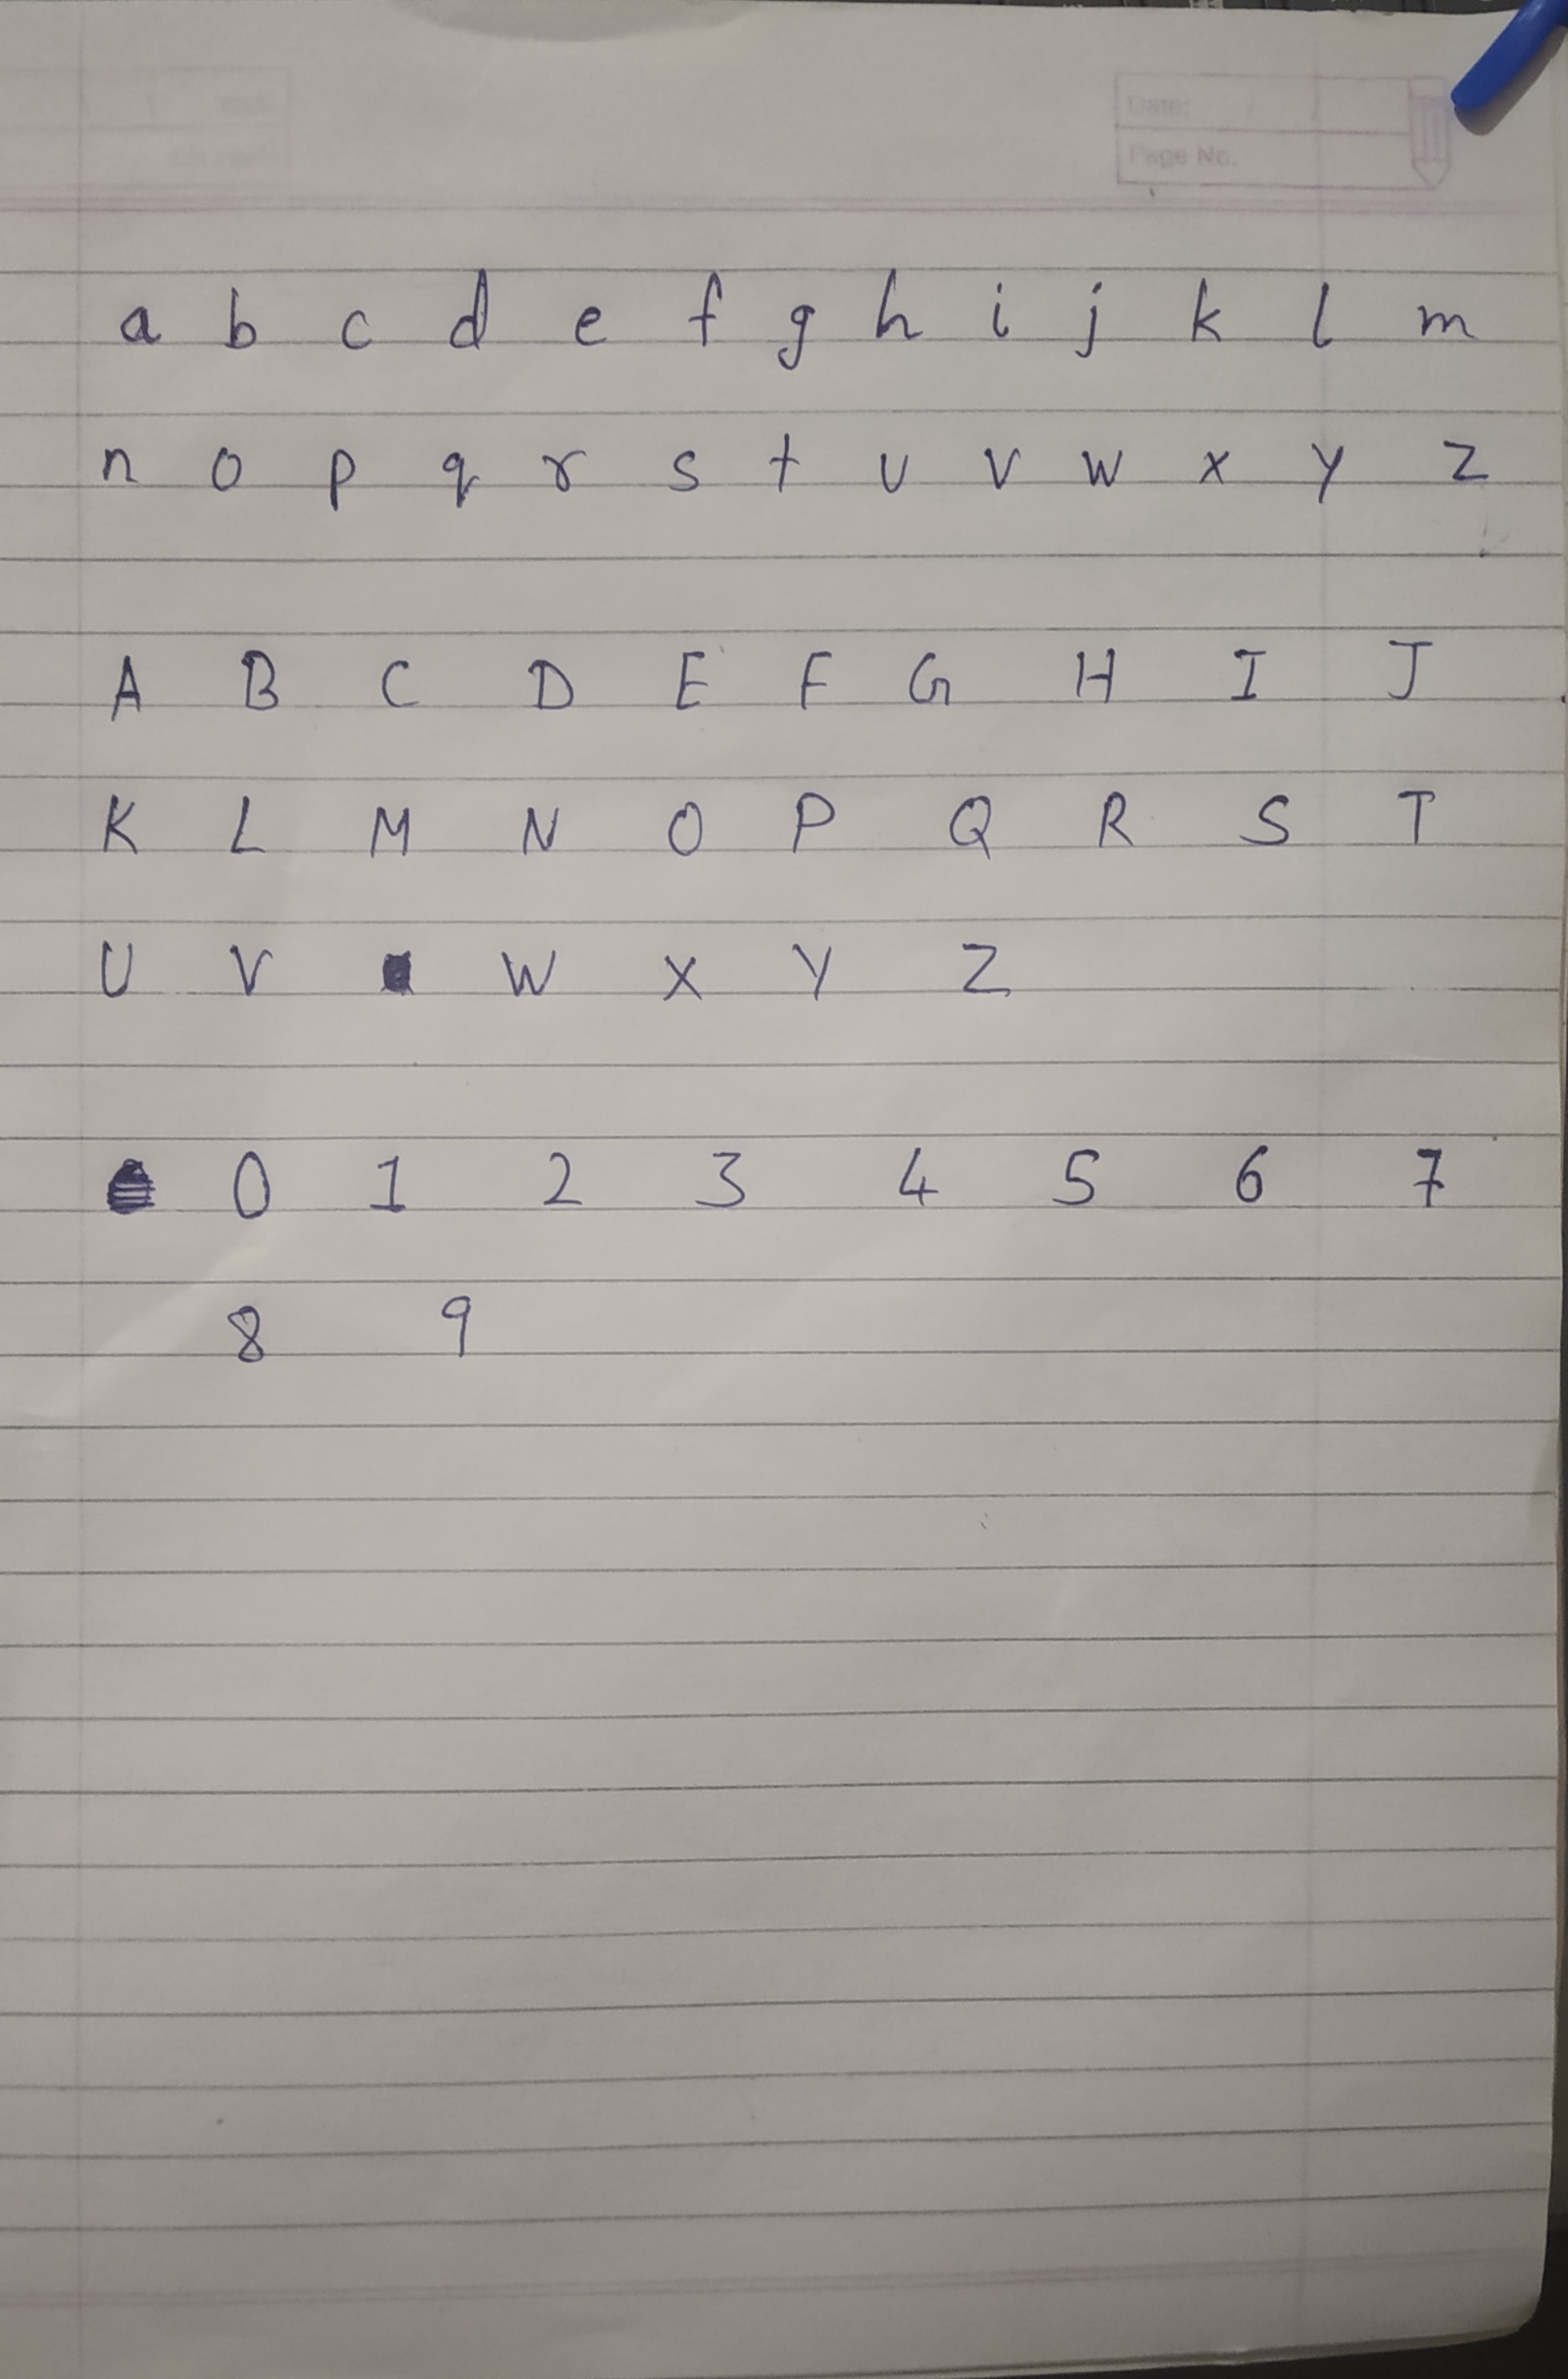 Date:
Page No.
a b c d e f g h i j k l m
n o p q r s t u v w x y z
A B C D E F G H I J
K L M N O P Q R S T
U V W X Y Z
0 1 2 3 4 5 6 7
8 9